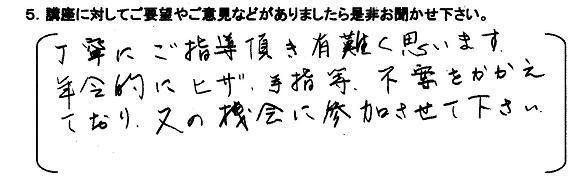 5. 講座に対してご要望やご意見などがありましたら是非お聞かせ下さい。
丁寧にご指導頂き有難く思います.
年令的にヒザ.手指等.不要をかかえ
ており.又の機会に参加させて下さい.